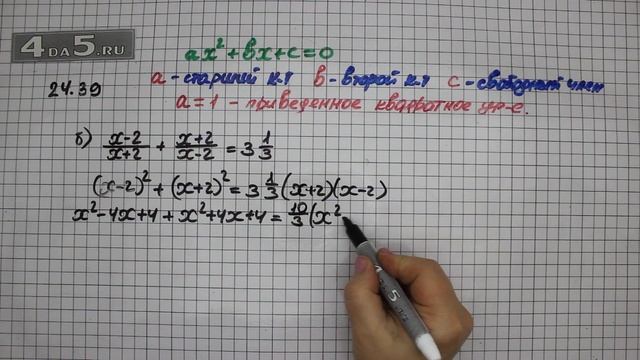 4DA5.RU
ax² + bx + c = 0
24.39
а - старший к-т в - второй к-т с - свободный член
а = 1 - приведенное квадратное ур-е.
б) (x-2)/(x+2) + (x+2)/(x-2) = 3 1/3
(x-2)² + (x+2)² = 3 1/3 (x+2)(x-2)
x² - 4x + 4 + x² + 4x + 4 = 10/3 (x²
4DA5